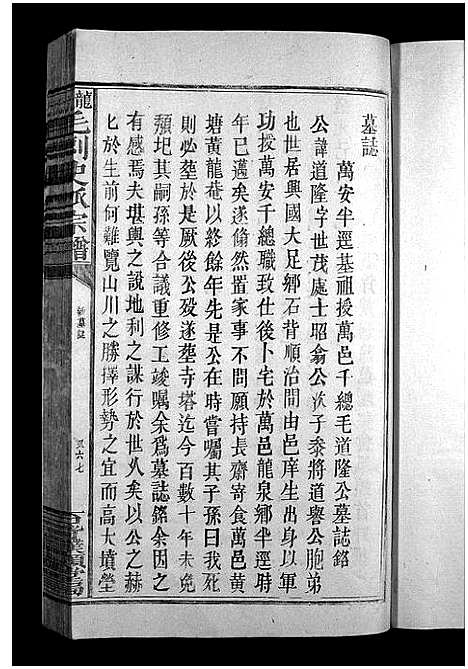 墓誌
萬安半逕基祖授萬邑千總毛道隆公墓誌銘
公諱道隆字世茂處士昭翁公次子叅將道譽公胞弟
也世居興國大足鄉石背順治間由邑庠生出身以軍
功授萬安千總職致仕後卜宅於萬邑龍泉鄉半逕時
年已邁矣遂翛然置家事不問願持長齋寄食萬邑黃
塘黃龍庵以終餘年先是公在時嘗囑其子孫曰我死
則必塟於是厥後公歿遂塟寺塔迄今百數十年未免
頹圮其嗣孫等合議重修工竣囑余爲墓誌銘余因之
有感焉夫堪輿之說地利之謀行於世久矣或以公之赫
匕於生前何難覽山川之勝擇形勢之宜而高大墳塋
龍毛刺史派宗譜
墓誌